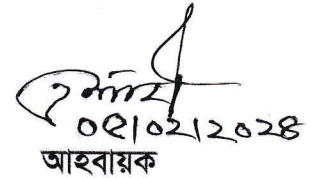 ০৫|০২|২০২৪
আহবায়ক